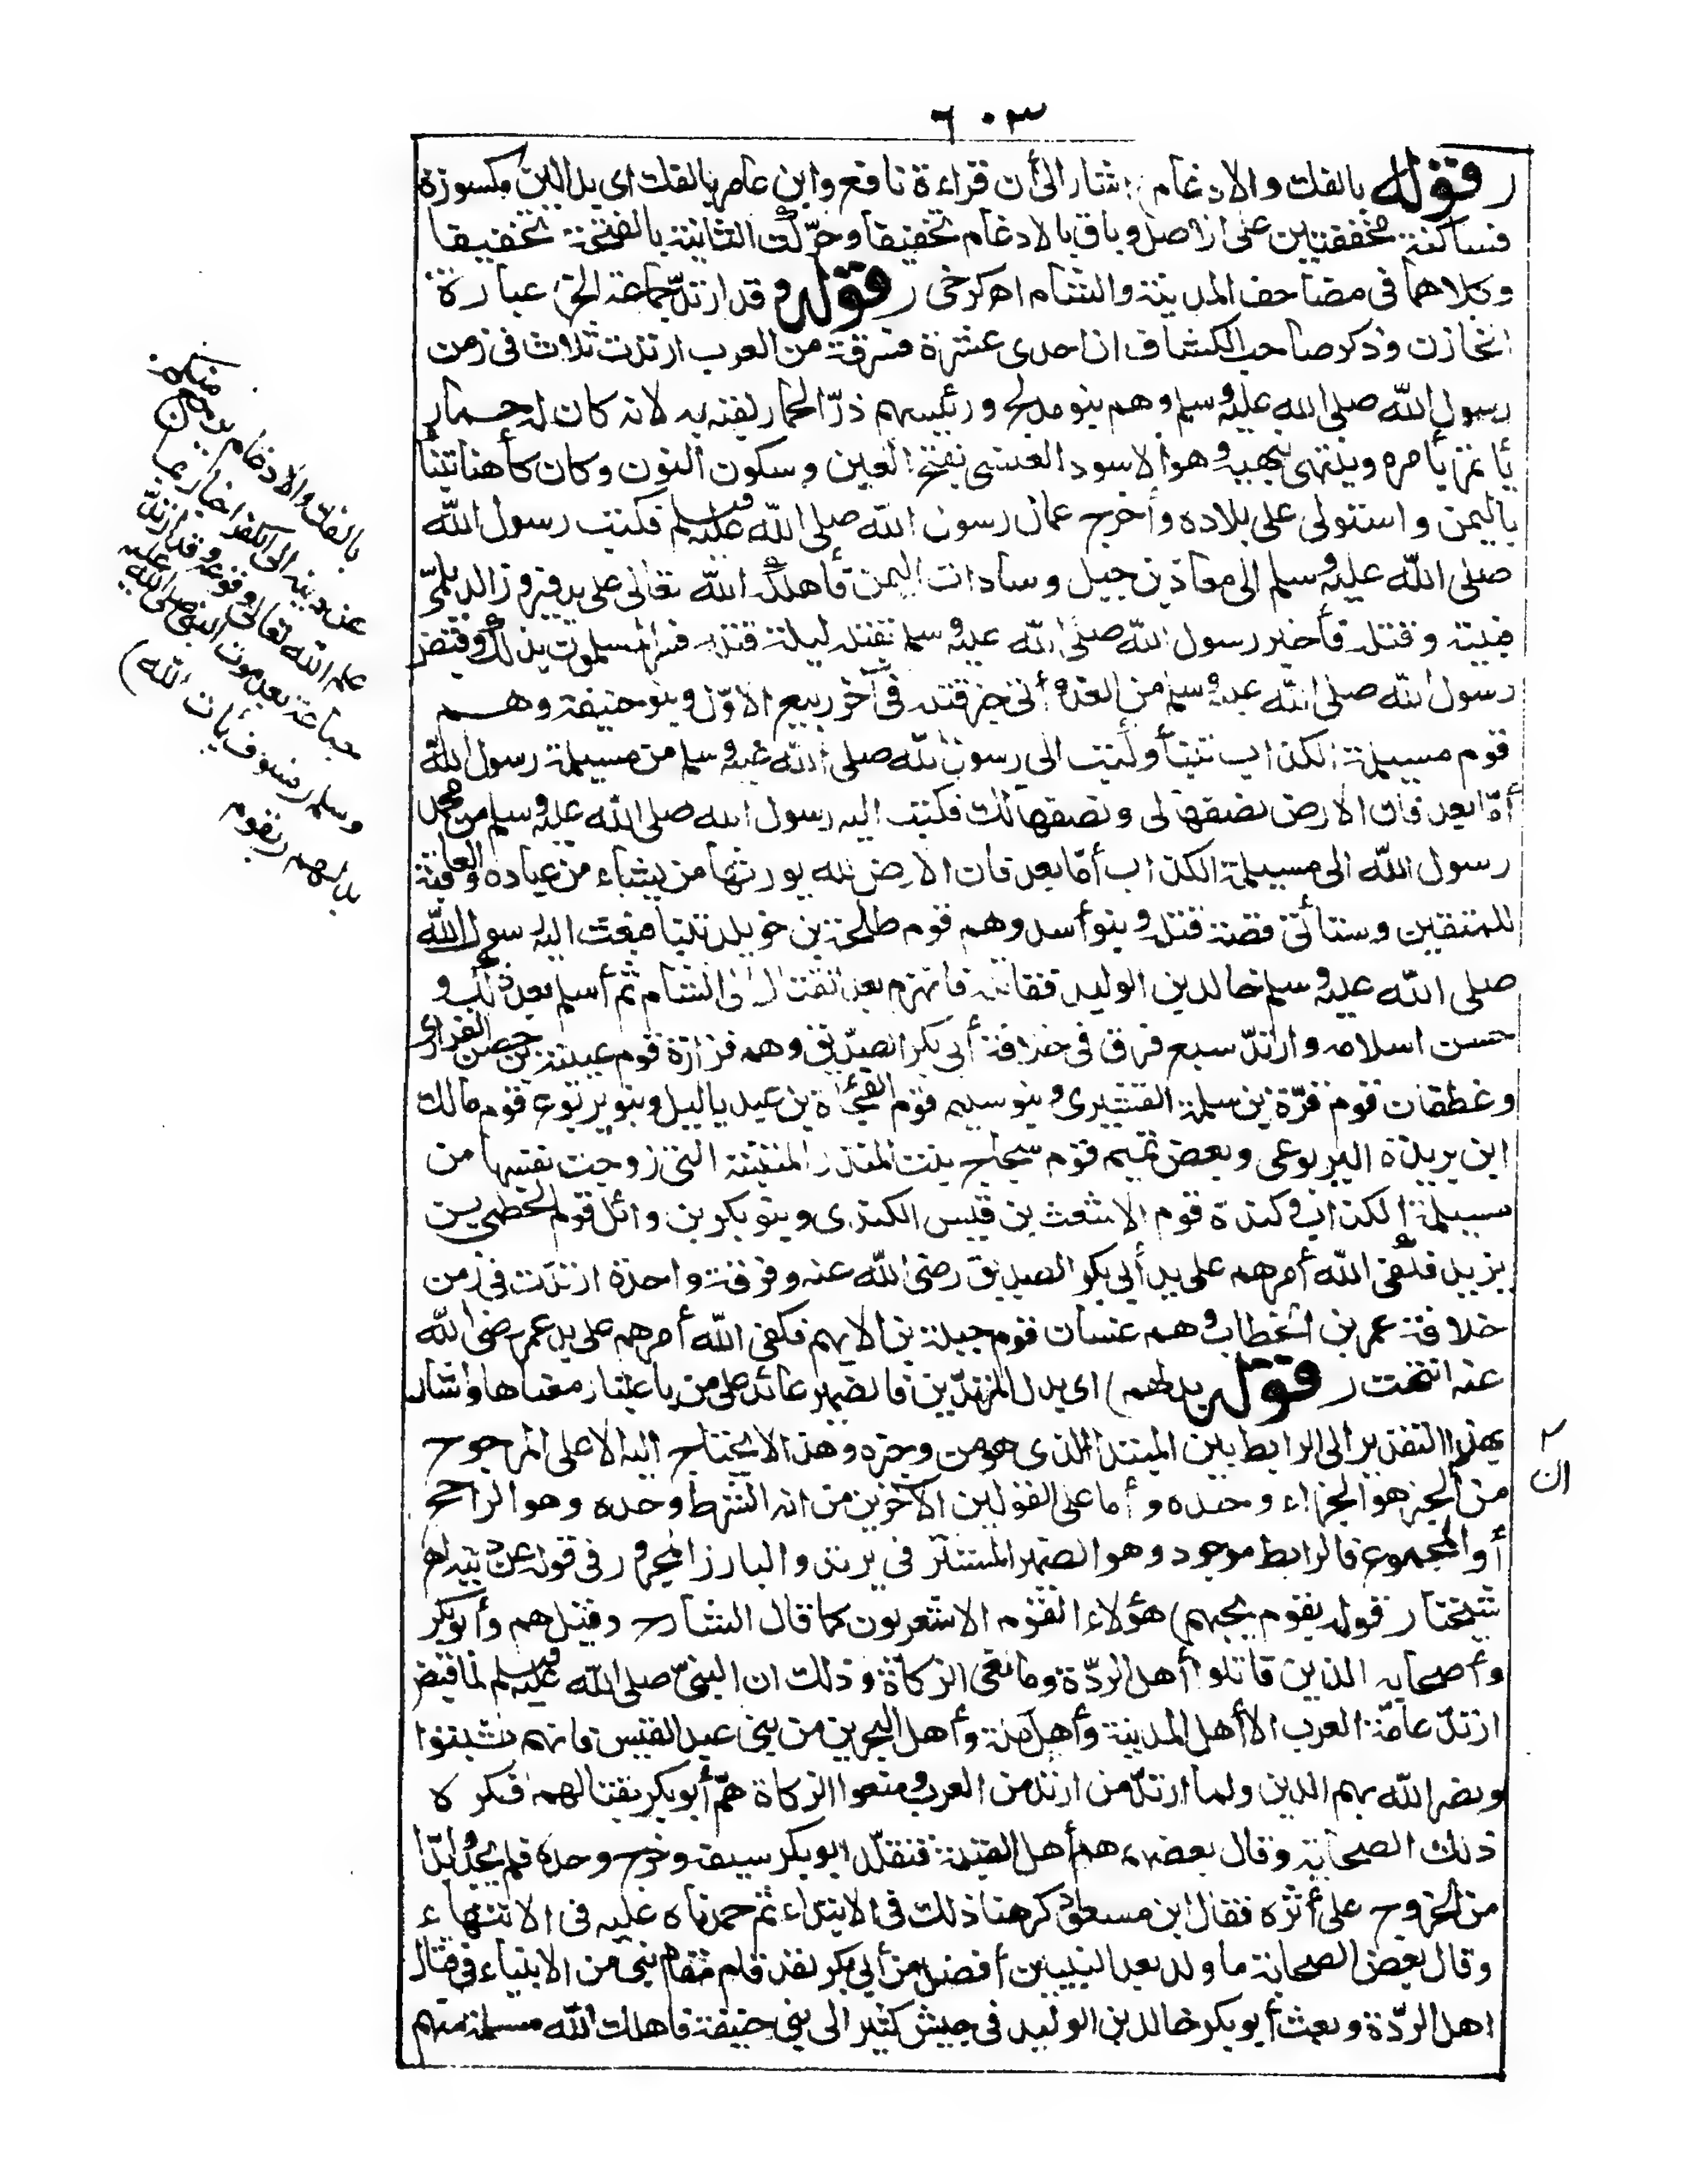 ٦٠٣
(قوله بالفك والادغام) اشار الى أن قراءة نافع وابن عامر بالفك اى بدالين مكسورة
فساكنة مخففتين على الاصل وباقى بالادغام تخفيفا وحرّكت الثانية بالفتحة تخفيفا
وكلاهما فى مصاحف المدينة والشام اه كرخى (قوله وقد ارتدّ جماعة الخ) عبارة
الخازن وذكر صاحب الكشاف ان احدى عشرة فرقة من العرب ارتدت ثلاث فى زمن
رسول الله صلى الله عليه وسلم وهم بنو مدلج ورئيسهم ذو الحمار لقب به لانه كان له حمار
يأتمر بأمره وينتهى بنهيه وهو الاسود العنسى بفتح العين وسكون النون وكان كاهنا تنبأ
باليمن واستولى على بلاده وأخرج عمال رسول الله صلى الله عليه وسلم فكتب رسول الله
صلى الله عليه وسلم الى معاذ بن جبل وسادات اليمن فأهلكه الله تعالى على يد فيروز الديلمىّ
فبيته وقتله فأخبر رسول الله صلى الله عليه وسلم بقتله ليلة قتله فسرّ المسلمون بذلك وقبض
رسول الله صلى الله عليه وسلم من الغد وأتى خبر قتله فى آخر ربيع الاوّل وبنو حنيفة وهم
قوم مسيلمة الكذاب تنبأ وكتب الى رسول الله صلى الله عليه وسلم من مسيلمة رسول الله
أمّا بعد فان الارض نصفها لى ونصفها لك فكتب اليه رسول الله صلى الله عليه وسلم من محمد
رسول الله الى مسيلمة الكذاب أمّا بعد فان الارض لله يورثها من يشاء من عباده والعاقبة
للمتقين وستأتى قصة قتله وبنو أسد وهم قوم طلحة بن خويلد تنبأ فبعث اليه رسول الله
صلى الله عليه وسلم خالد بن الوليد فقاتله فانهزم بعد القتال الى الشام ثم أسلم بعد ذلك و
حسن اسلامه وارتدّ سبع فرق فى خلافة أبى بكر الصدّيق وهم فزارة قوم عيينة بن حصن الفزارى
وغطفان قوم قرّة بن سلمة القشيرى وبنو سليم قوم الفجأة بن عبد ياليل وبنو يربوع قوم مالك
ابن بريدة اليربوعى وبعض تميم قوم سجاح بنت المنذر المتنبئة التى زوجت نفسها من
مسيلمة الكذاب وكندة قوم الاشعث بن قيس الكندى وبنو بكر بن وائل قوم الحطمى بن
يزيد فكفى الله أمرهم على يد أبى بكر الصديق رضى الله عنه وفرقة واحدة ارتدت فى زمن
خلافة عمر بن الخطاب وهم غسان قوم جبلة بن الايهم فكفى الله أمرهم على يد عمر رضى الله
عنه انتهت (قوله بدلهم) اى بدل المرتدّين فالضمير عائد على من باعتبار معناها واشار
بهذا التقدير الى الرابط بين المبتدا الذى هو من وخبره وهذا الا يحتاج اليه الا على المرجوح
من ان الخبر هو الجزاء وحده وأما على القولين الآخرين من انه الشرط وحده وهو الراجح
أو المجموع فالرابط موجود وهو الضمير المستتر فى يرتد والبارز المجرور فى قوله عن دينه اه
شيخنا (قوله بقوم يحبهم) هؤلاء القوم الاشعريون كما قال الشارح وقيل هم وأبو بكر
وأصحابه الذين قاتلوا أهل الردّة ومانعى الزكاة وذلك ان النبىّ صلى الله عليه وسلم لما قبض
ارتدّ عامّة العرب الا أهل المدينة وأهل مكة وأهل البحرين من بنى عبد القيس فانهم ثبتوا
ونصر الله بهم الدين ولما ارتدّ من ارتد من العرب ومنعوا الزكاة همّ أبو بكر بقتالهم فكره
ذلك الصحابة وقال بعضهم هم أهل القبلة فتقلّد ابو بكر سيفه وخرج وحده فلم يجدوا بدّا
من الخروج على أثره فقال ابن مسعود كرهنا ذلك فى الابتداء ثم حمدناه عليه فى الانتهاء
وقال بعض الصحابة ما ولد بعد النبيين أفضل من أبى بكر لقد قام مقام نبى من الانبياء فى قتال
اهل الردّة وبعث أبو بكر خالد بن الوليد فى جيش كثير الى بنى حنيفة فاهلك الله مسيلمة منهم
ان
منكم
بالفك والادغام يرجع
عن دينه الى الكفر اخبار بما
علم الله تعالى وقوعه وقد ارتدّ
جماعة بعد موت النبى صلى الله عليه
وسلم (فسوف يأت الله)
بدلهم (بقوم